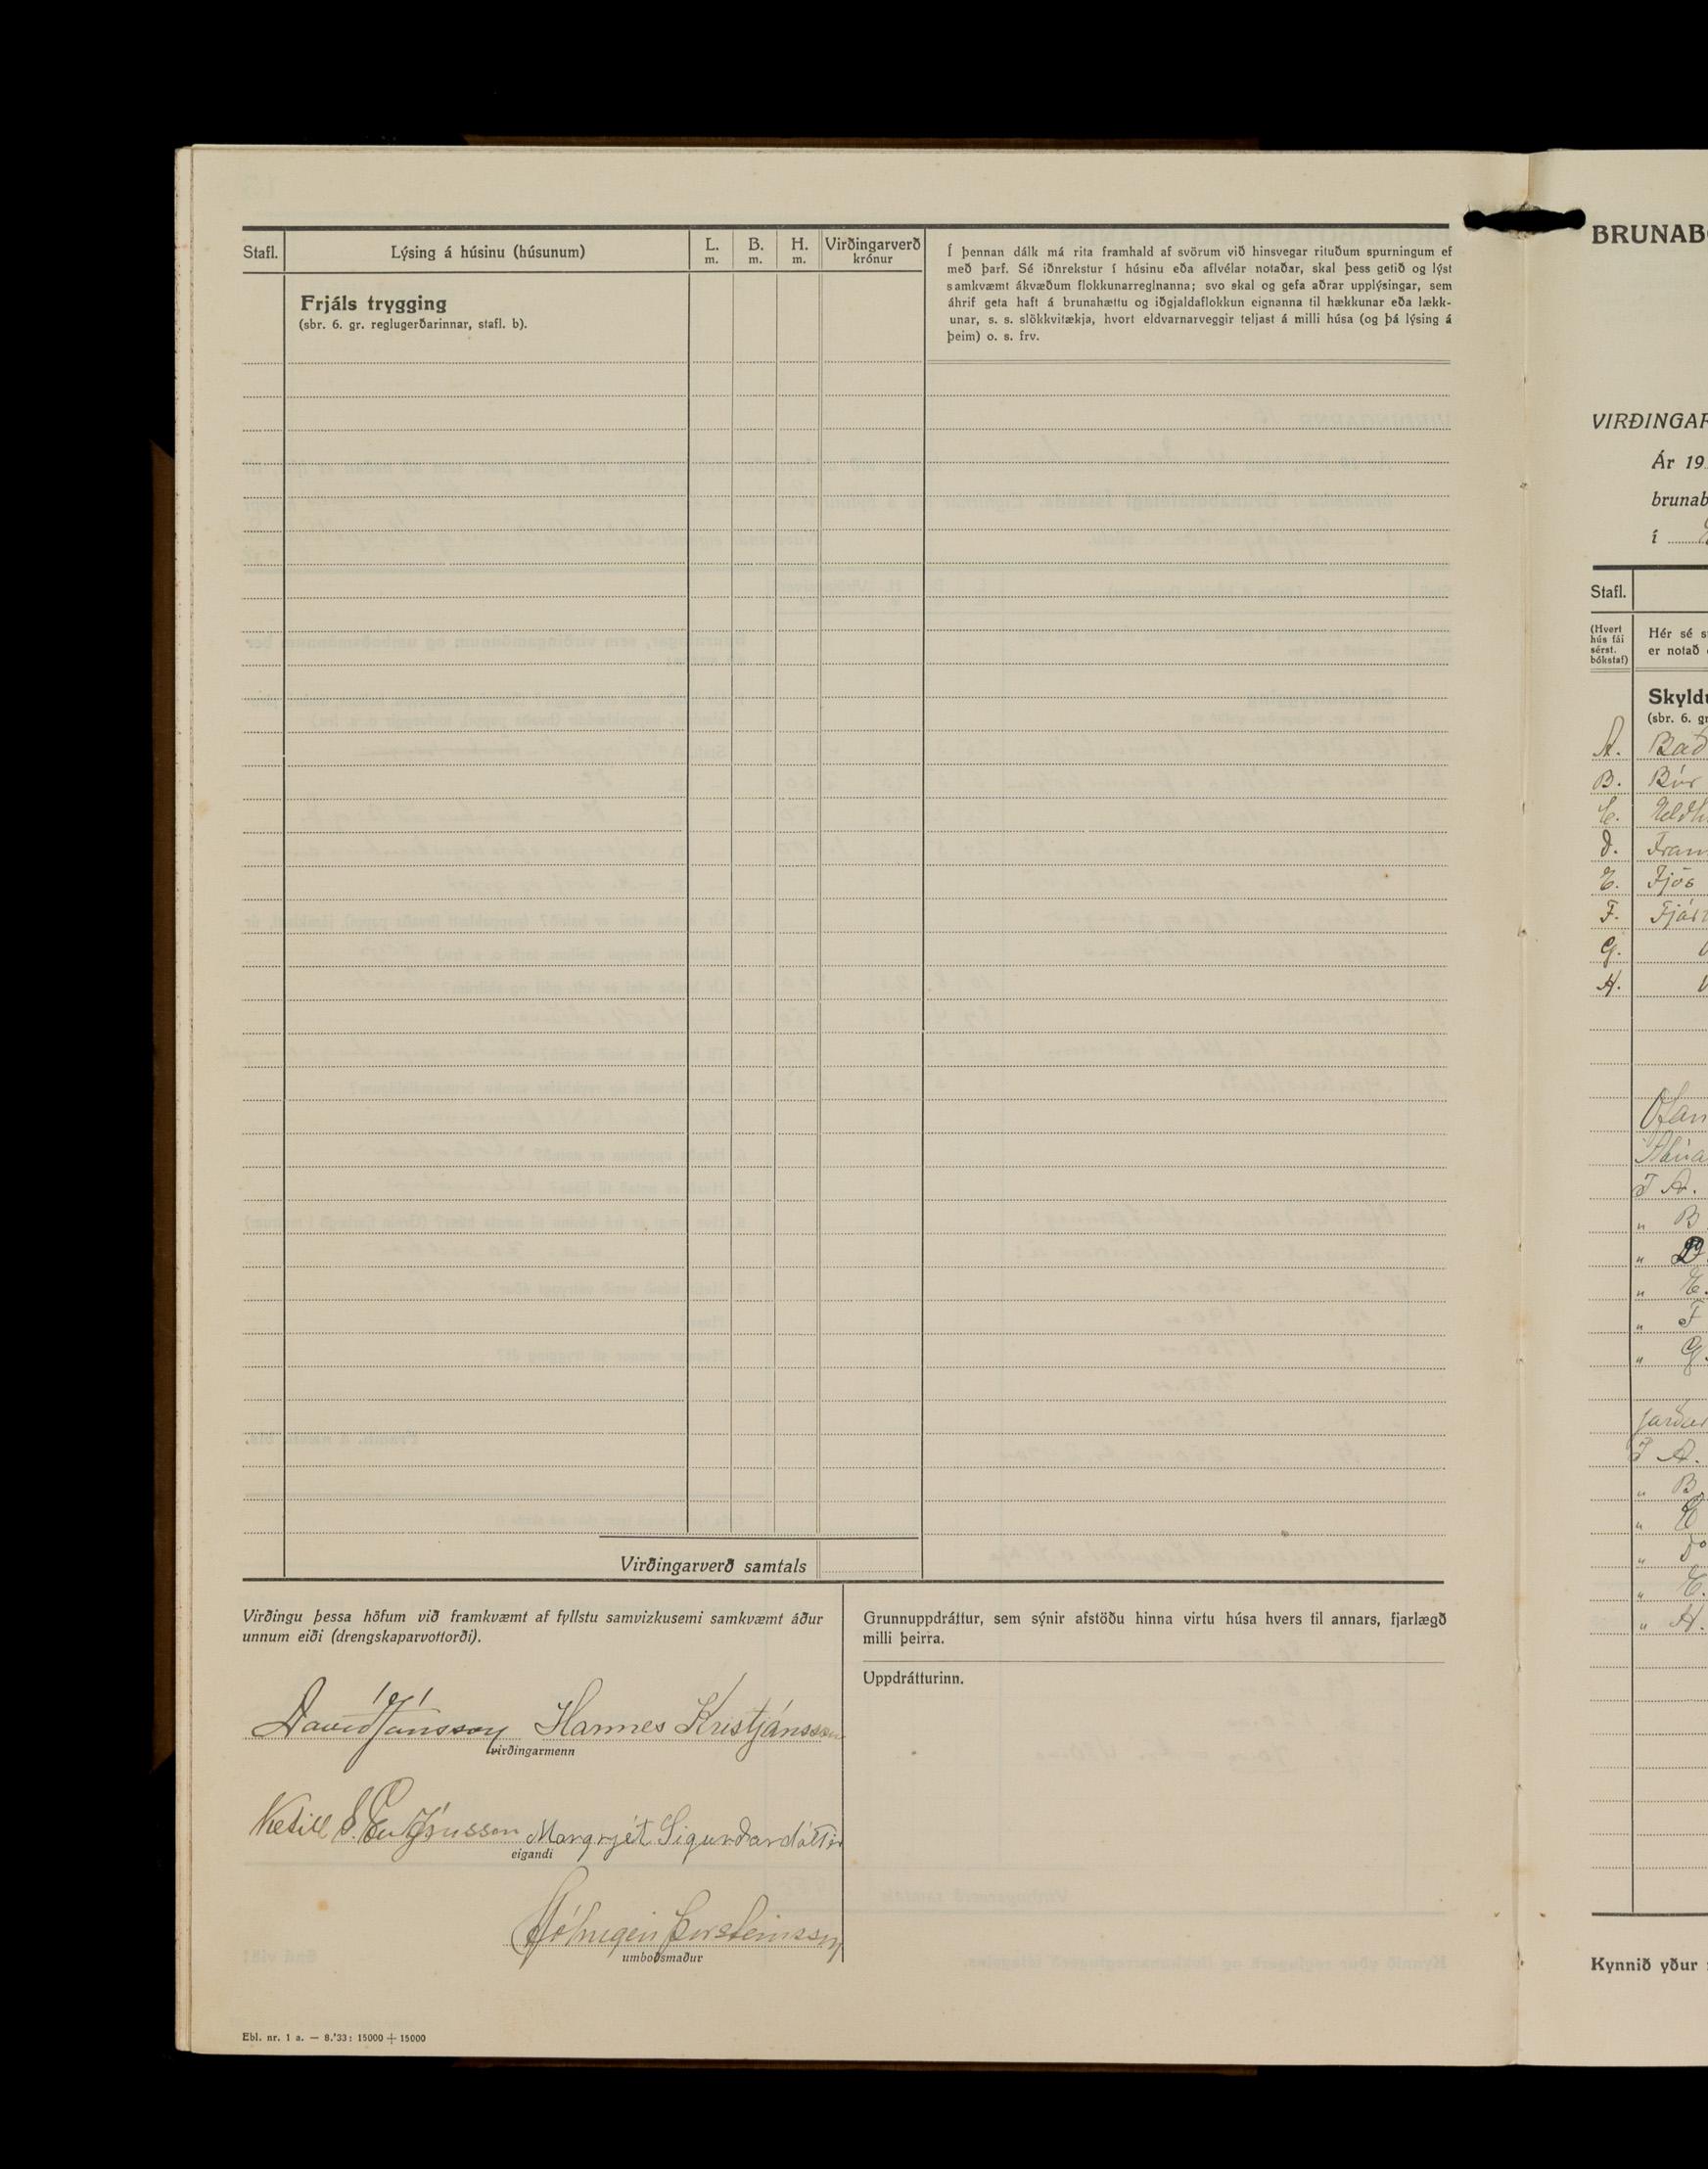 Stafl.
Lýsing á húsinu (húsunum)
L.
m.
B.
m.
H.
m.
Virðingarverð
krónur
Frjáls trygging
(sbr. 6. gr. reglugerðarinnar, stafl. b).
Í þennan dálk má rita framhald af svörum við hinsvegar rituðum spurningum ef
með þarf. Sé iðnrekstur í húsinu eða aflvélar notaðar, skal þess getið og lýst
samkvæmt ákvæðum flokkunarreglnanna; svo skal og gefa aðrar upplýsingar, sem
áhrif geta haft á brunahættu og iðgjaldaflokkun eignanna til hækkunar eða lækk-
unar, s. s. slökkvitækja, hvort eldvarnarveggir teljast á milli húsa (og þá lýsing á
þeim) o. s. frv.
Virðingarverð samtals
Virðingu þessa höfum við framkvæmt af fyllstu samvizkusemi samkvæmt áður
unnum eiði (drengskaparvottorði).
Davíð Jónsson Hannes Kristjánsson
virðingarmenn
Ketill S. Guðjónsson Margrjét Sigurðardóttir
eigandi
Hólmgeir Þorsteinsson
umboðsmaður
Grunnuppdráttur, sem sýnir afstöðu hinna virtu húsa hvers til annars, fjarlægð
milli þeirra.
Uppdrátturinn.
Ebl. nr. 1 a. — 8.'33: 15000 + 15000
BRUNAB
VIRÐINGAR
Ár 19
brunab
í
Stafl.
(Hvert
hús fái
sérst.
bókstaf)
Hér sé s
er notað
Skyld
(sbr. 6. gr
A. Bað
B. Búr
C. Eldh
D. Fram
E. Fjós
F. Fjár
G.
H.
Ofan
J A.
" B
" D.
" E.
" F
" G.
J A.
" B.
" C
" E.
" H.
Kynnið yður